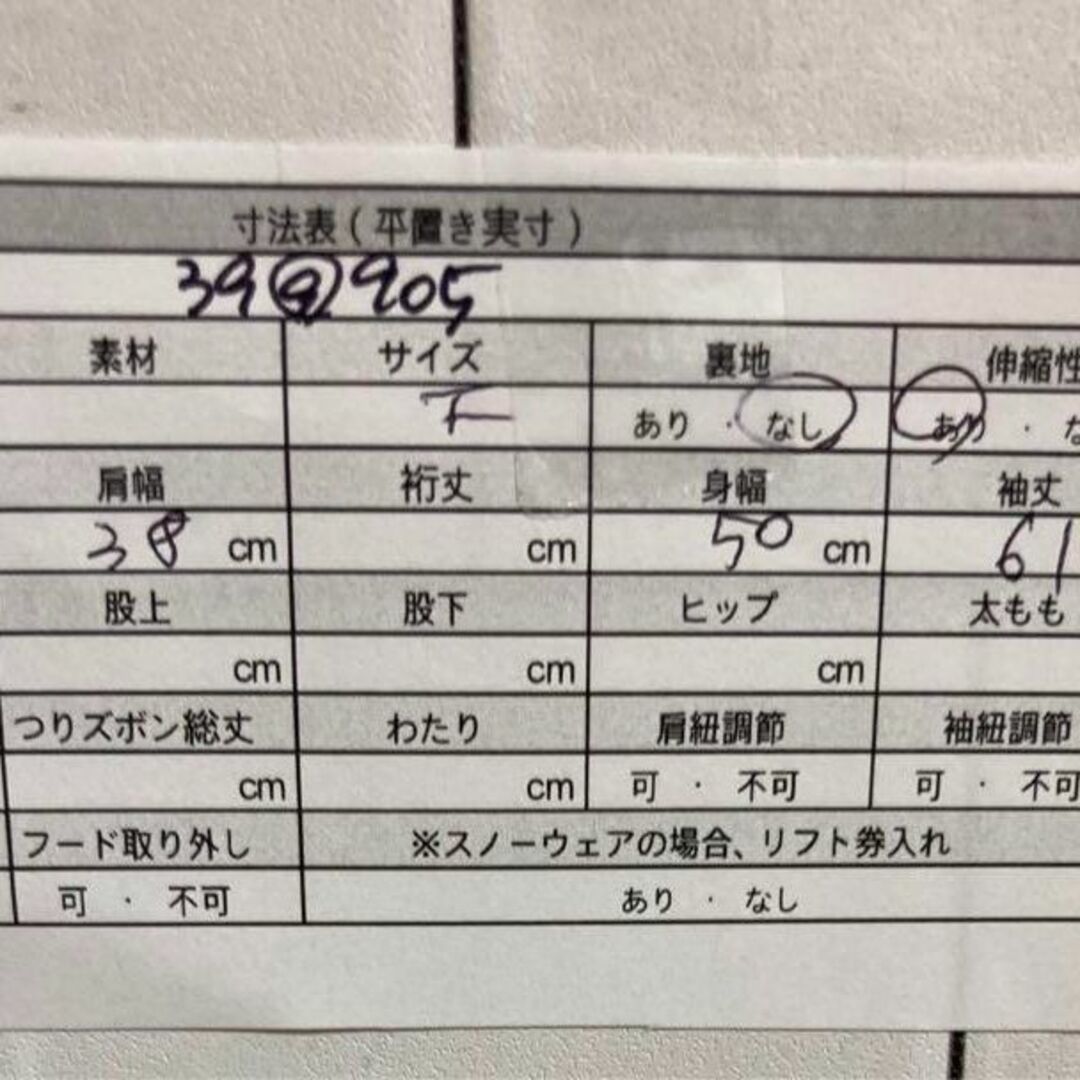 寸法表(平置き実寸)
39㋮905
素材 サイズ 裏地 伸縮性
F あり ・ なし あり ・ な
肩幅 裄丈 身幅 袖丈
38 cm cm 50 cm 61
股上 股下 ヒップ 太もも
cm cm cm
つりズボン総丈 わたり 肩紐調節 袖紐調節
cm cm 可 ・ 不可 可 ・ 不可
フード取り外し ※スノーウェアの場合、リフト券入れ
可 ・ 不可 あり ・ なし